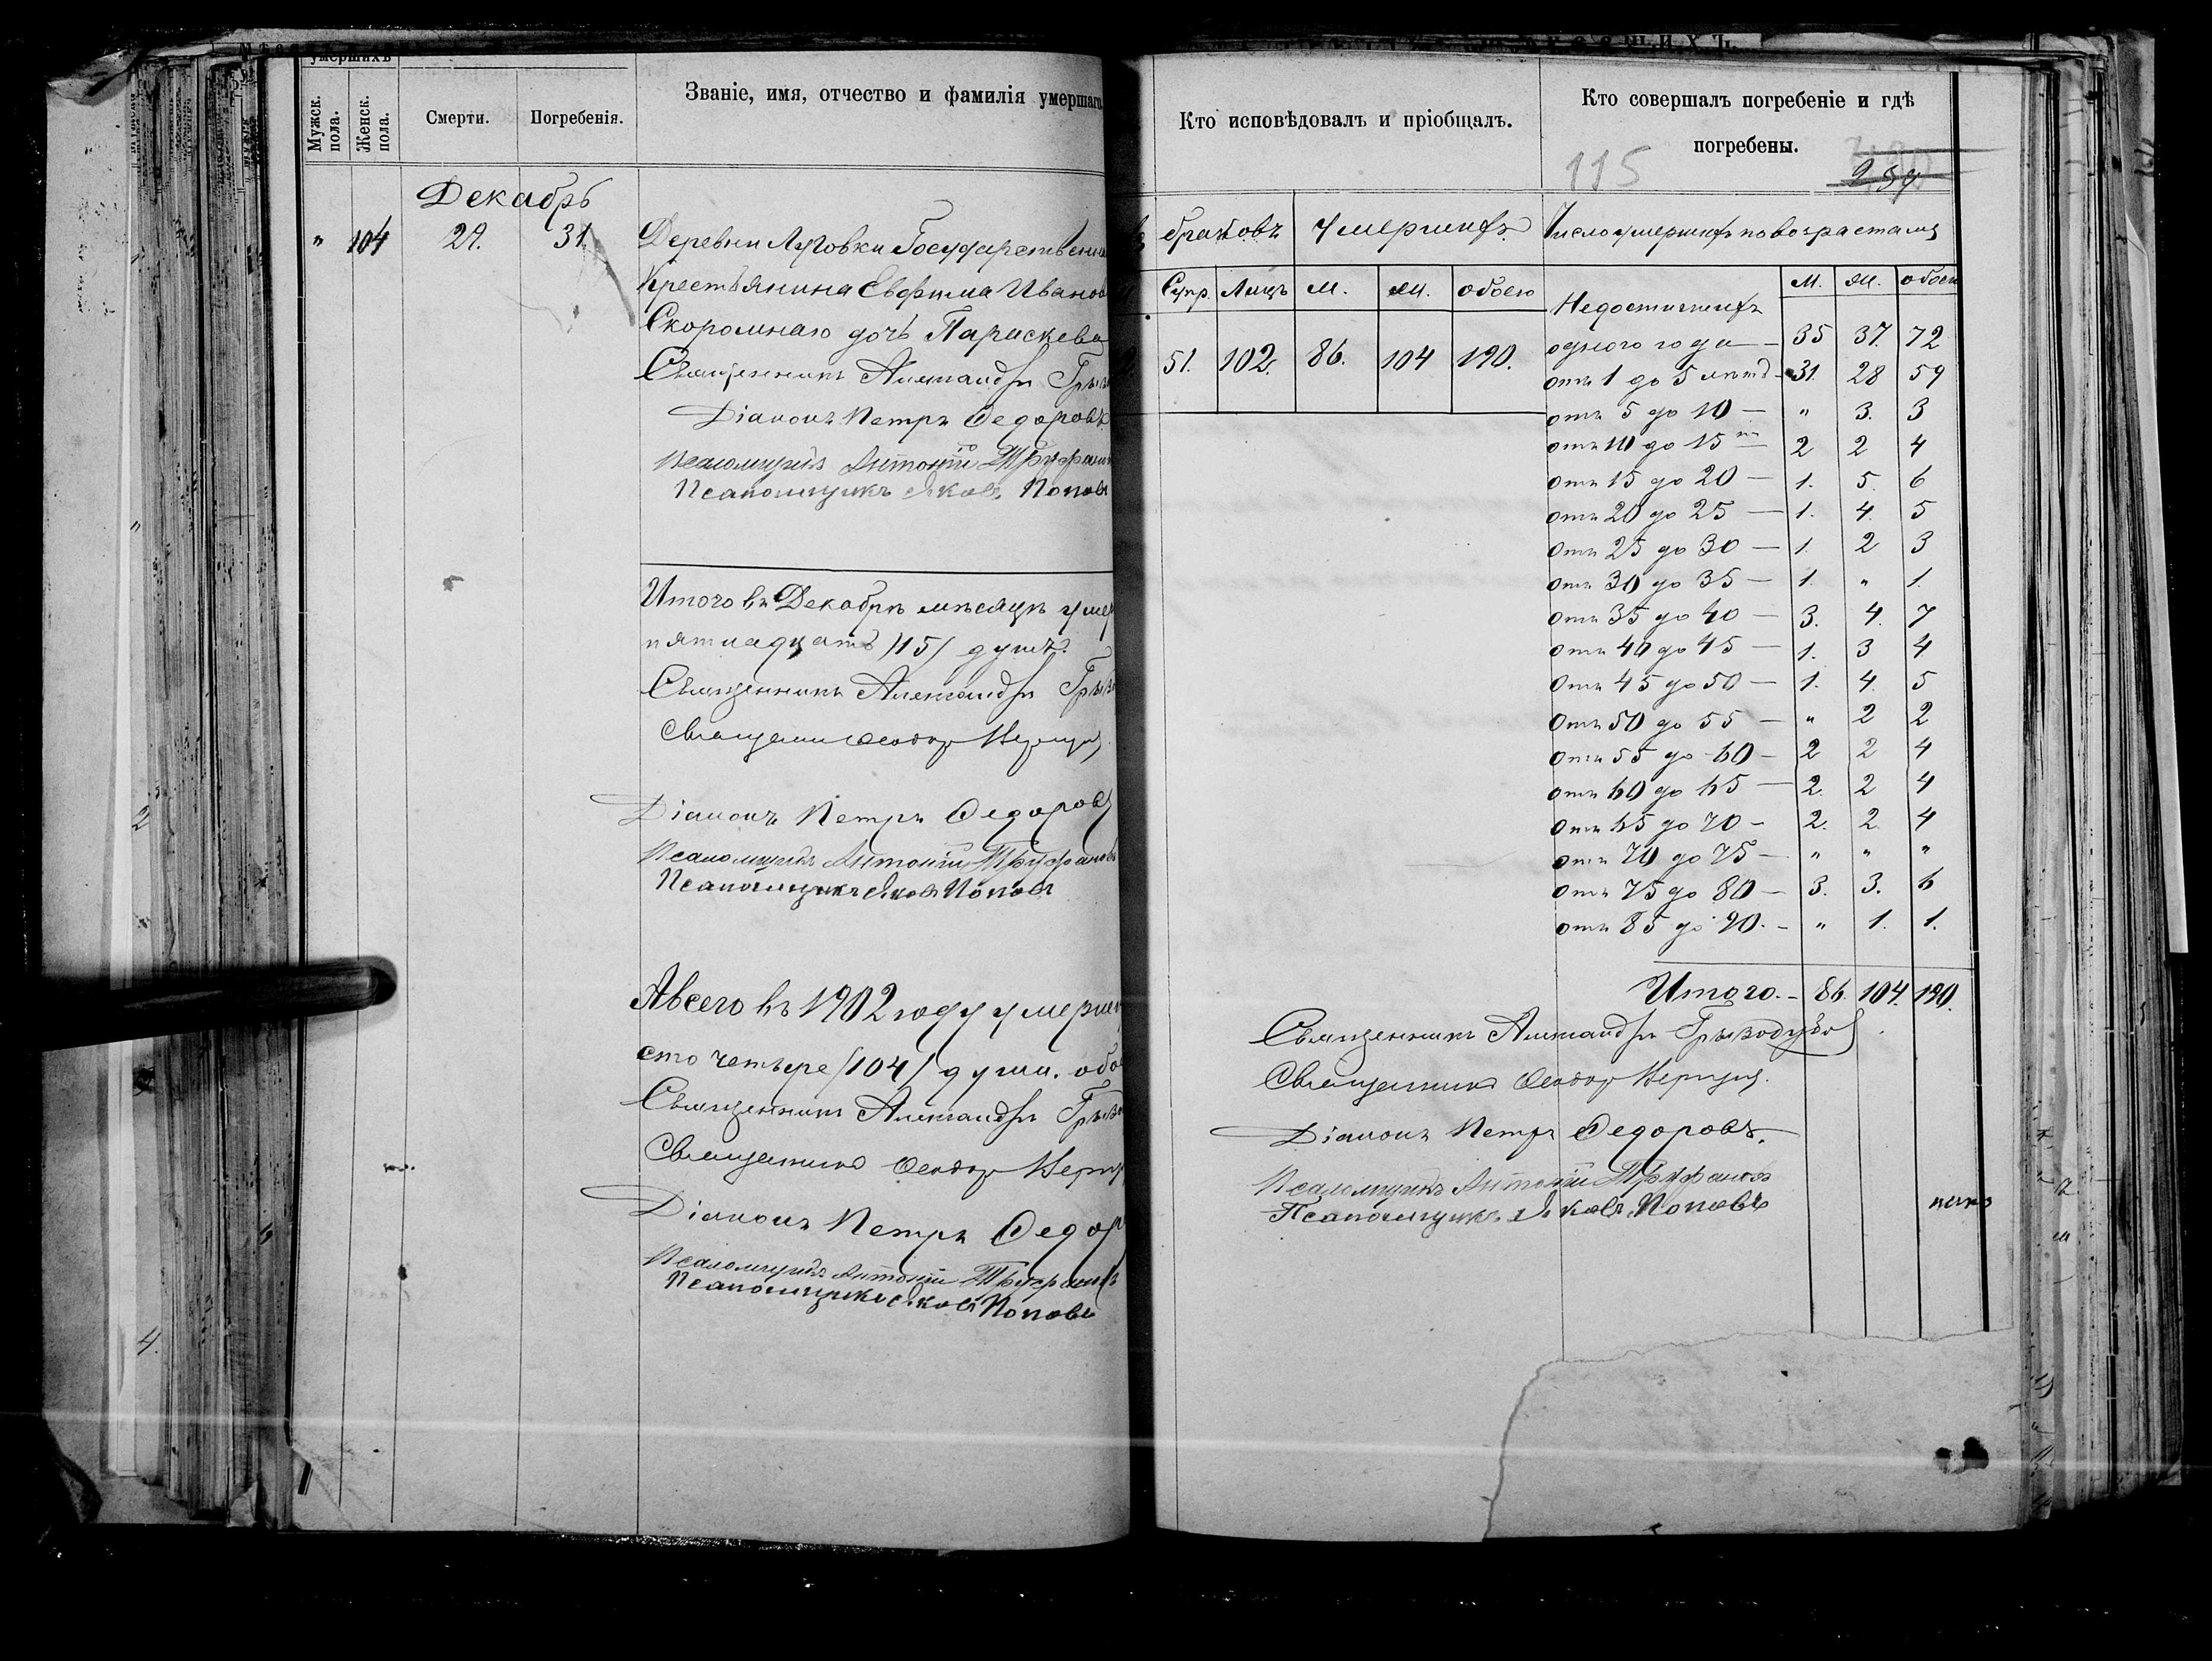 умершихъ
Мужск. пола.
Женск. пола.
Смерти.
Погребенія.
Званіе, имя, отчество и фамилія умершаго
Декабрь
" 104 29. 31.
Деревни Луговки Государствен
Крестьянина Евфима Иванов
Скоромнаго дочь Параскева
Священникъ Александръ
Діаконъ Петръ Федоровъ
Псаломщикъ Антоній Труфанов
Псаломщикъ Яковъ Поповъ
Итого въ Декабрѣ мѣсяцѣ умер
пятнадцать /15/ душъ.
Священникъ Александръ
Священникъ Феодоръ
Діаконъ Петръ Федоровъ
Псаломщикъ Антоній Труфановъ
Псаломщикъ Яковъ Поповъ
А всего въ 1902 году умерш
сто четыре /104/ души. обо
Священникъ Александръ
Священникъ Феодоръ
Діаконъ Петръ Федор
Псаломщикъ Антоній Труфановъ
Псаломщикъ Яковъ Поповъ
Кто исповѣдовалъ и пріобщалъ.
Кто совершалъ погребеніе и гдѣ
погребены.
115
браковъ Умершихъ Число умершихъ по возрастамъ
Супр. Лицъ м. ж. обоего
51. 102. 86. 104 190.
м. ж. обоего
Недостигшихъ
одного года — 35 37. 72
отъ 1 до 5 лѣтъ — 31. 28 59
отъ 5 до 10 — " 3. 3
отъ 10 до 15 — 2 2 4
отъ 15 до 20 — 1. 5. 6
отъ 20 до 25 — 1. 4. 5
отъ 25 до 30 — 1. 2 3
отъ 30 до 35 — 1. " 1.
отъ 35 до 40 — 3. 4. 7
отъ 40 до 45 — 1. 3 4
отъ 45 до 50 — 1. 4. 5
отъ 50 до 55 — " 2 2
отъ 55 до 60 — 2 2 4
отъ 60 до 65 — 2. 2 4
отъ 65 до 70 — 2. 2. 4
отъ 70 до 75 — " " "
отъ 75 до 80 — 3. 3. 6
отъ 85 до 90. — " 1. 1.
Итого. — 86. 104. 190.
Священникъ Александръ
Священникъ Феодоръ
Діаконъ Петръ Федоровъ.
Псаломщикъ Антоній Труфановъ
Псаломщикъ Яковъ Поповъ